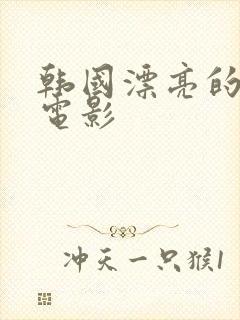 韩国漂亮的
電影
冲天一只猴1